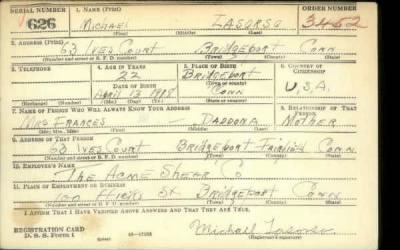 SERIAL NUMBER 1. NAME (Print) ORDER NUMBER
626 MICHAEL LASORSO 3452
(First) (Middle) (Last)
2. ADDRESS (Print)
63 IVES COURT BRIDGEPORT CONN
(Number and street or R. F. D. number) (Town) (County) (State)
3. TELEPHONE 4. AGE IN YEARS 5. PLACE OF BIRTH 6. COUNTRY OF CITIZENSHIP
22 BRIDGEPORT
DATE OF BIRTH (Town or county)
APRIL 13 1918 CONN U.S.A.
(Exchange) (Number) (Mo.) (Day) (Yr.) (State or country)
7. NAME OF PERSON WHO WILL ALWAYS KNOW YOUR ADDRESS 8. RELATIONSHIP OF THAT PERSON
MRS FRANCES — DADDONA MOTHER
(Mr., Mrs., Miss) (First) (Middle) (Last)
9. ADDRESS OF THAT PERSON
63 IVES COURT BRIDGEPORT FAIRFIELD CONN.
(Number and street or R. F. D. number) (Town) (County) (State)
10. EMPLOYER'S NAME
THE ACME SHEAR CO
11. PLACE OF EMPLOYMENT OR BUSINESS
100 HICKS ST BRIDGEPORT CONN
(Number and street or R. F. D. number) (Town) (County) (State)
I AFFIRM THAT I HAVE VERIFIED ABOVE ANSWERS AND THAT THEY ARE TRUE.
REGISTRATION CARD
D. S. S. Form 1 Michael Lasorso
(Registrant's signature)